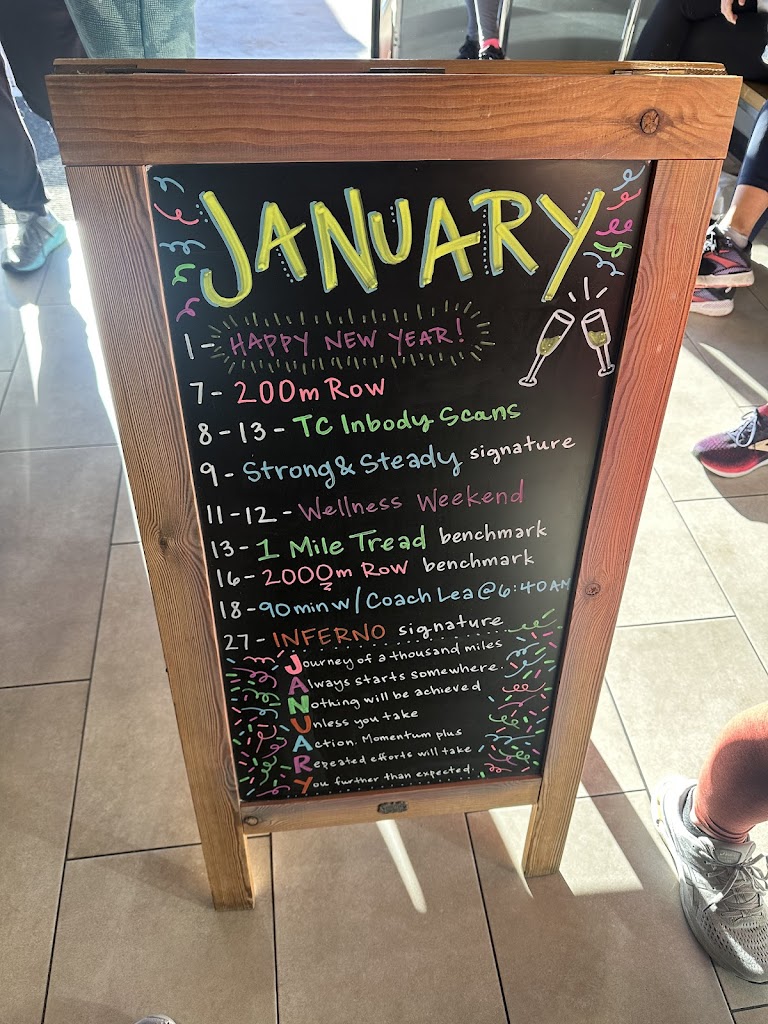 JANUARY
1 - HAPPY NEW YEAR!
7 - 200m Row
8 - 13 - TC Inbody Scans
9 - Strong & Steady signature
11 - 12 - Wellness Weekend
13 - 1 Mile Tread benchmark
16 - 2000m Row benchmark
18 - 90 min w/ Coach Lea @ 6:40 AM
27 - INFERNO signature
Journey of a thousand miles
Always starts somewhere.
Nothing will be achieved
Unless you take
Action. Momentum plus
Repeated efforts will take
You further than expected.